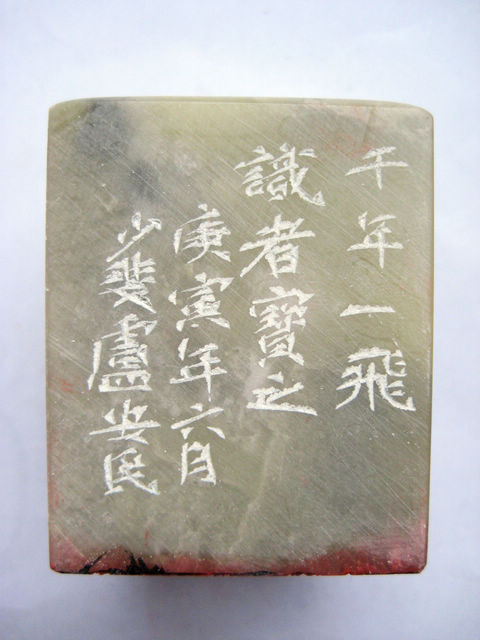 千年一飛
識者寶之
庚寅年六月
少斐盧安民